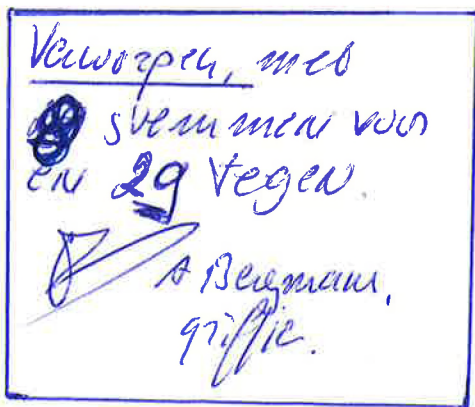 Verworpen, met
stemmen voor
en 29 tegen.
A Bergmann,
griffie.